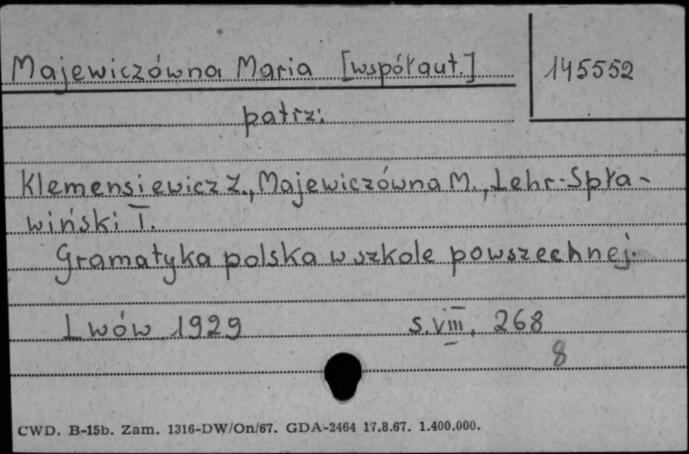 Majewiczówna Maria [współaut.] 145552
patrz:
Klemensiewicz Z., Majewiczówna M., Lehr-Spła-
wiński T.
Gramatyka polska w szkole powszechnej.
Lwów 1929 s. VIII, 268
8
CWD. B-15b. Zam. 1316-DW/On/67. GDA-2464 17.8.67. 1.400.000.